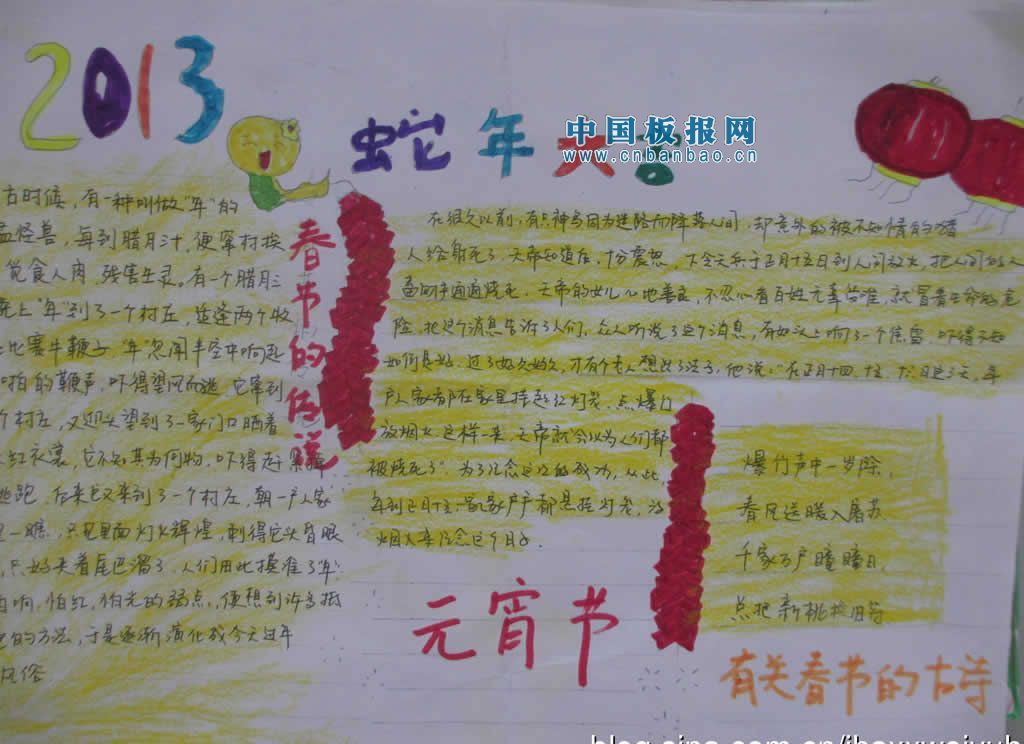 2013
蛇年大吉
中国板报网
www.cnbanbao.cn
春节的传说
古时候,有一种叫做“年”的
猛怪兽,每到腊月
便窜村挨
觅食人肉,残害生灵。有一个腊月三
晚上“年”到了一个村庄,
两个牧
比赛牛鞭子“年”忽闻半空中响起
啪的鞭声,吓得望风而逃。它窜到
个村庄,又迎头望到了一家门口晒着
红衣裳,它不知其为何物,吓得赶
逃跑 后来它又来到了一个村庄,朝一户人家
一瞧,只见里面灯火辉煌,刺得它头昏眼
,只好夹着尾巴溜了。人们由此摸准了“年”
响,怕红,怕光的弱点,便想到许多抵
它的方法,于是逐渐演化成今天过年
风俗
在很久以前,有只神鸟因为迷路而降落人间,却意外的被不知情的猎
人给射死了。天帝知道后,十分震怒,下令天兵于正月十五日到人间放火,把人间的人
畜
通通烧死。天帝的女儿心地善良,不忍心看百姓无辜
,就冒着生命的危
险,把这个消息告诉了人们。众人听说了这个消息,有如头上响了一个焦雷,吓得不知
如何是好,过了好久好久,才有个老人想出了法子,他说:“在正月十四、十五、十六日这三天,每
户人家都在家里挂起红灯笼、点爆竹
放烟火 这样一来,天帝就会以为人们都
被烧死了”。为了纪念这次的成功,从此
每到正月十五,家家户户都悬挂灯笼,放
烟火来纪念这个日子。
元宵节
爆竹声中一岁除,
春风送暖入屠苏
千家万户瞳瞳日,
总把新桃换旧符
有关春节的古诗